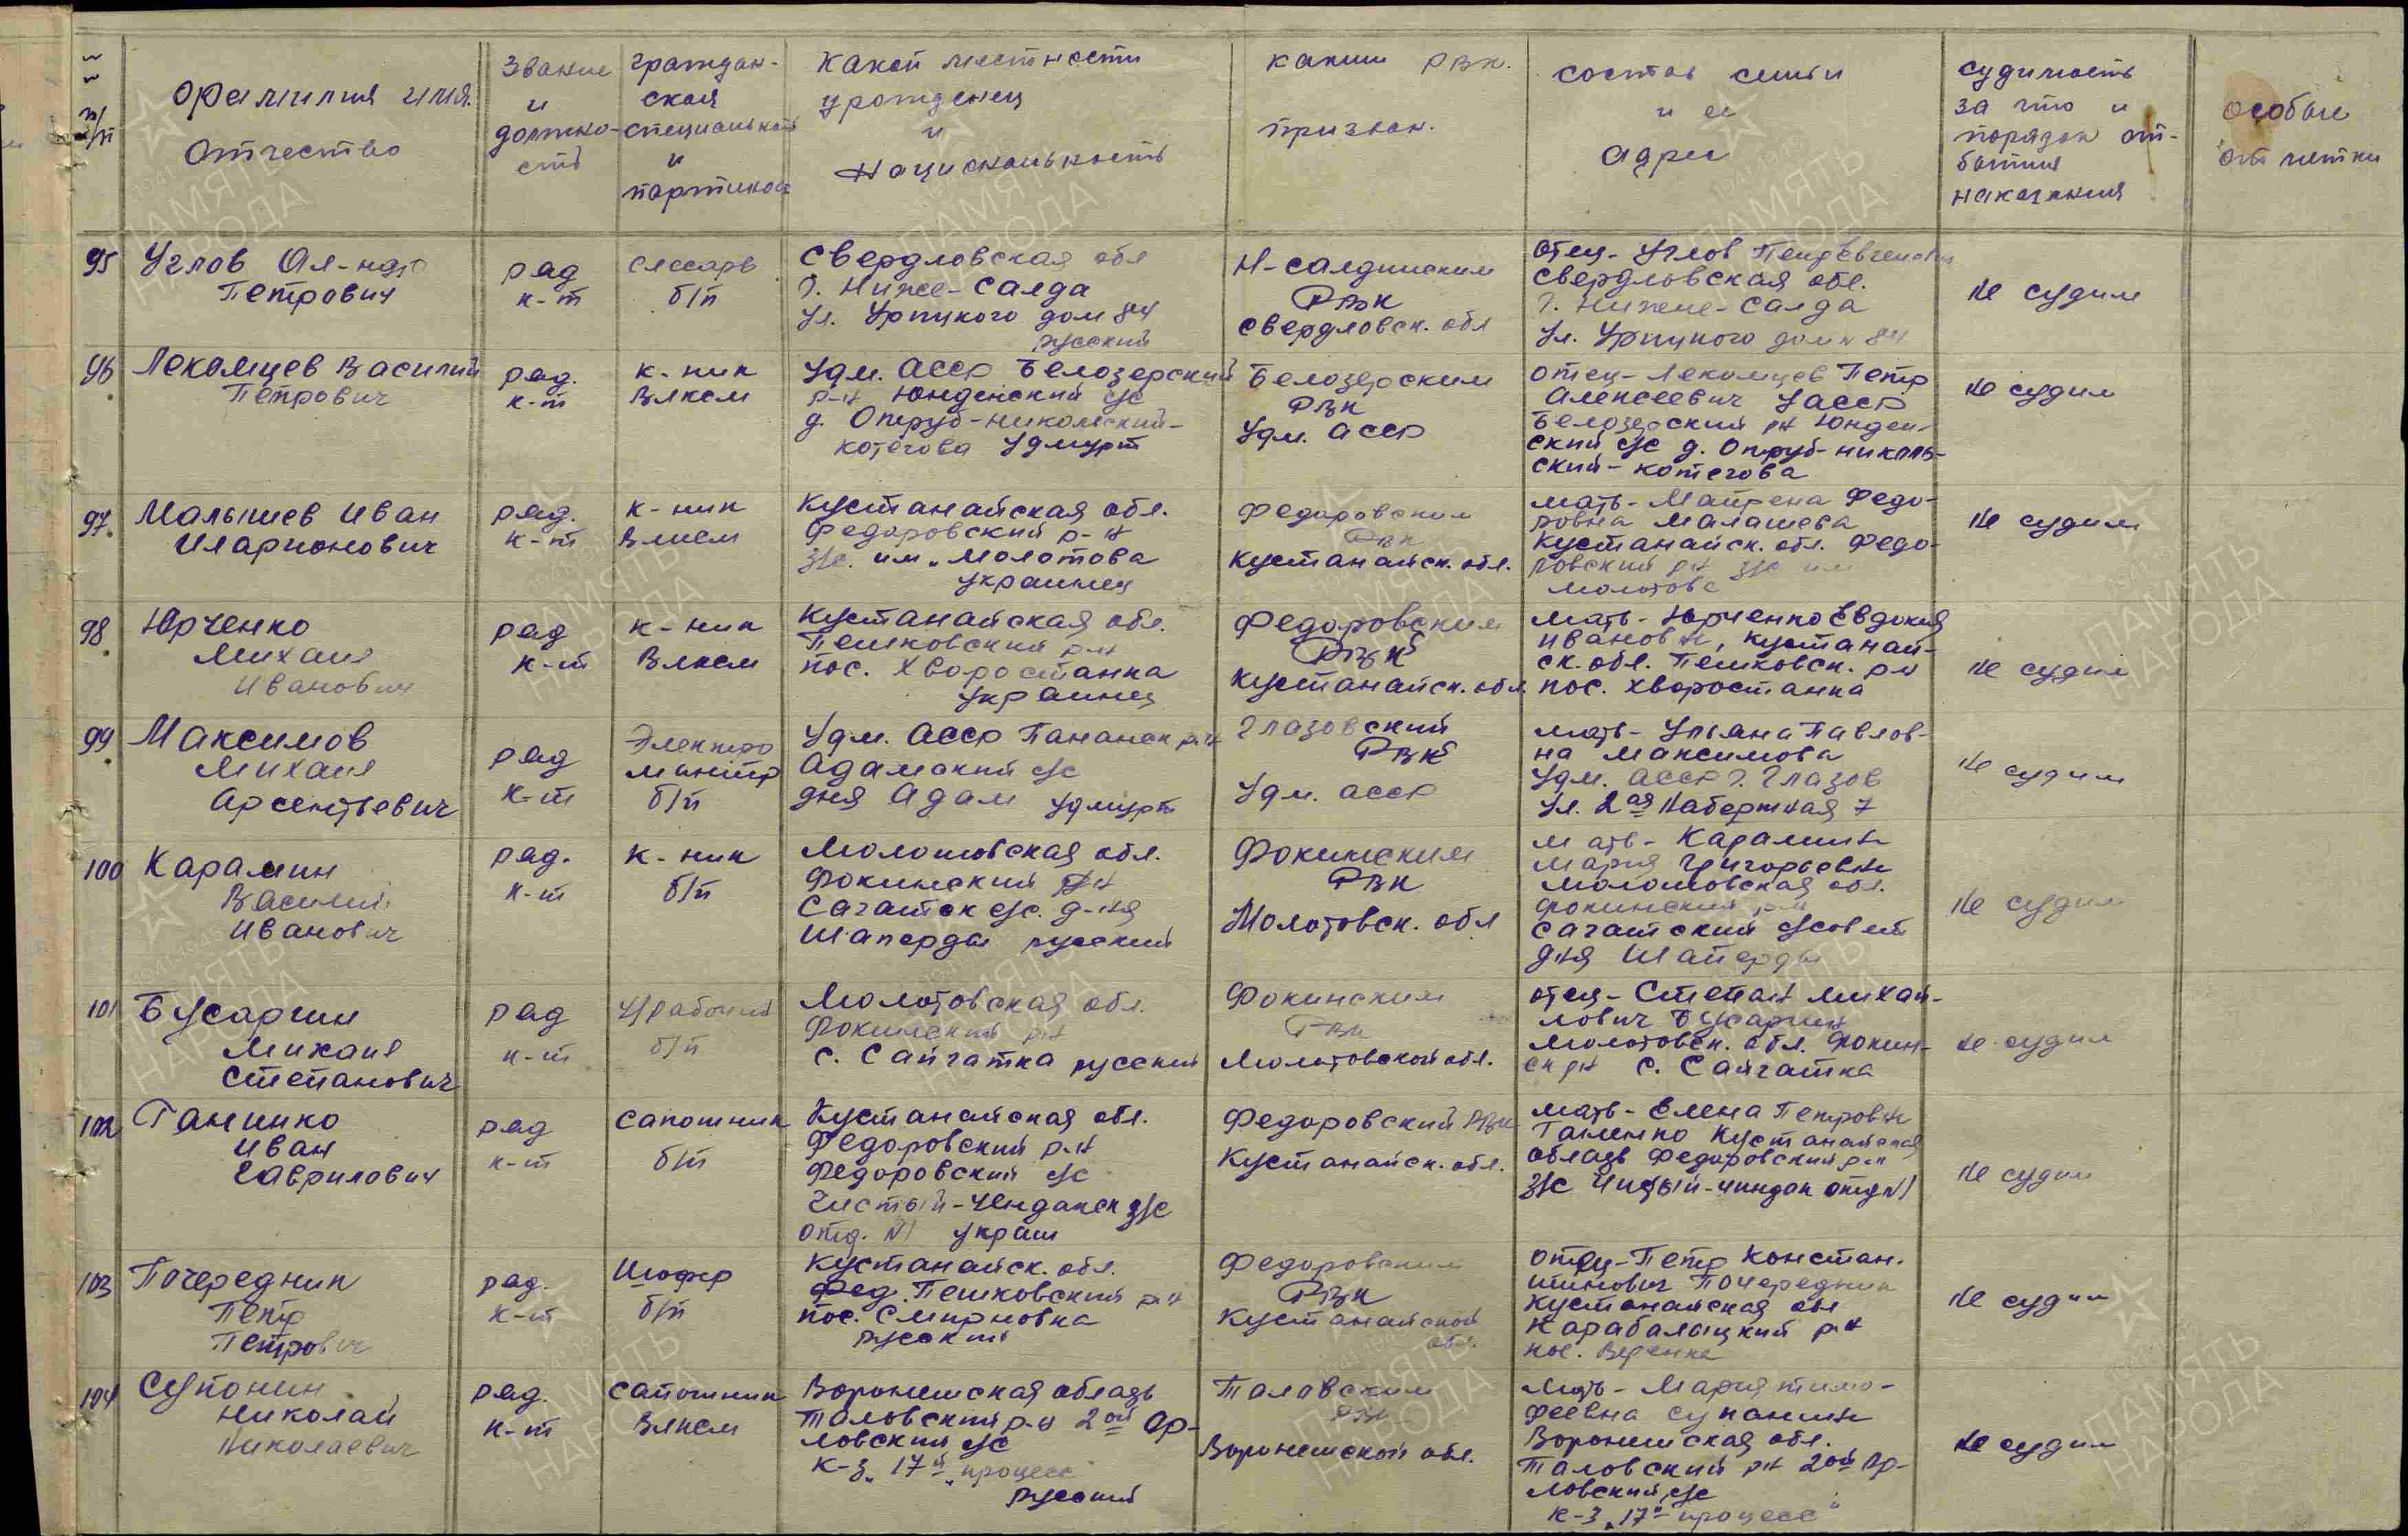 № п/п
Фамилия имя.
Отчество
Звание
и
должно-
сть
Граждан-
ская
специальность
и
партийност
Какой местности
урожденец
и
Национальность
Каким РВК.
призван.
Состав семьи
и ее
Адрес
Судимость
за что и
порядок от-
бытия
наказания
Особые
отметки
95 Углов Ал-ндр
Петрович
ряд
к-т
слесарь
б/п
Свердловская обл
г. Ниже-Салда
ул. Урицкого дом 84
русский
Н-Салдинским
РВК
Свердловск. обл
Отец - Углов
Свердловская обл.
г. Нижне-Салда
ул. Урицкого дом 84
не судим
96 Лекомцев Василий
Петрович
ряд.
к-т
к-ник
ВЛКСМ
Удм. АССР Белозерский
р-н Юнденский с/с
д. Опруб-Никольский-
котегова Удмурт
Белозерским
РВК
Удм. АССР
Отец - Лекомцев Петр
Алексеевич УАССР
Белозерский р-н Юнден-
ский с/с д. Опруб-николь-
ский-котегова
не судим
97. Малышев Иван
Иларионович
ряд.
к-т
к-ник
ВЛКСМ
Кустанайская обл.
Федоровский р-н
з/с. им. Молотова
украинец
Федоровским
РВК
Кустанайск. обл.
мать - Матрена Федо-
ровна Малашева
Кустанайск. обл. Федо-
ровский р-н з/с им
Молотова
не судим
98. Юрченко
Михаил
Иванович
ряд
к-т
к-ник
ВЛКСМ
Кустанайская обл.
Пешковский р-н
пос. Хворостанка
украинец
Федоровским
РВК
Кустанайск. обл.
мать - Юрченко Евдокия
Ивановн, Кустанай-
ск. обл. Пешковск. р-н
пос. Хворостанка
не судим
99. Максимов
Михаил
Арсентьевич
ряд
к-т
Электро
монтер
б/п
Удм. АССР р-н
Адамский с/с
дня Адам удмурт
Глазовский
РВК
Удм. АССР
мать - Ульяна Павлов-
на Максимова
Удм. АССР г. Глазов
ул. 2ая Набержная 7
не судим
100 Карамин
Василий
Иванович
ряд.
к-т
к-ник
б/п
Молотовская обл.
Фокинский р-н
с/с. д-ня
Шаперды русский
Фокинским
РВК
Молотовск. обл
мать - Карамин
Мария Григорьевн
Молотовская обл.
Фокинский р-н
с/совет
д-ня Шаперды
не судим
101 Бусаргин
Михаил
Степанович
ряд
к-т
б/п
Молотовская обл.
Фокинский р-н
с. Сайгатка русский
Фокинским
РВК
Молотовской обл.
отец - Степан Михай-
лович Бусаргин
Молотовск. обл. Фокин-
ск р-н с. Сайгатка
не судим
102 Ганинко
Иван
Гаврилович
ряд
к-т
Сапожник
б/п
Кустанайская обл.
Федоровский р-н
Федоровский с/с
Чистый-Чендакск з/с
отд. №1 украин
Федоровский РВК
Кустанайск. обл.
мать - Елена Петровн
Кустанайская
область Федоровский р-н
з/с отд №1
не судим
103 Почередник
Петр
Петрович
ряд.
к-т
Шофер
б/п
Кустанайск. обл.
Пешковский р-н
пос. Смирновка
русский
Федоровским
РВК
Кустанайской
обл.
отец - Петр Констан.
тинович Почередник
Кустанайская обл
Карабалыцкий р-н
пос. Веренка
не судим
104 Супонин
Николай
Николаевич
ряд.
к-т
Сапожник
ВЛКСМ
Воронежская область
Таловский р-н 2ой Ор-
ловский с/с
к-з „17й процесс
русский
Таловским
РВК
Воронежской обл.
Мать - Мария Тимо-
феевна Супонин
Воронежская обл.
Таловский р-н 2ой Ор-
ловский с/с
к-з „17й процесс"
не судим
ПАМЯТЬ
НАРОДА